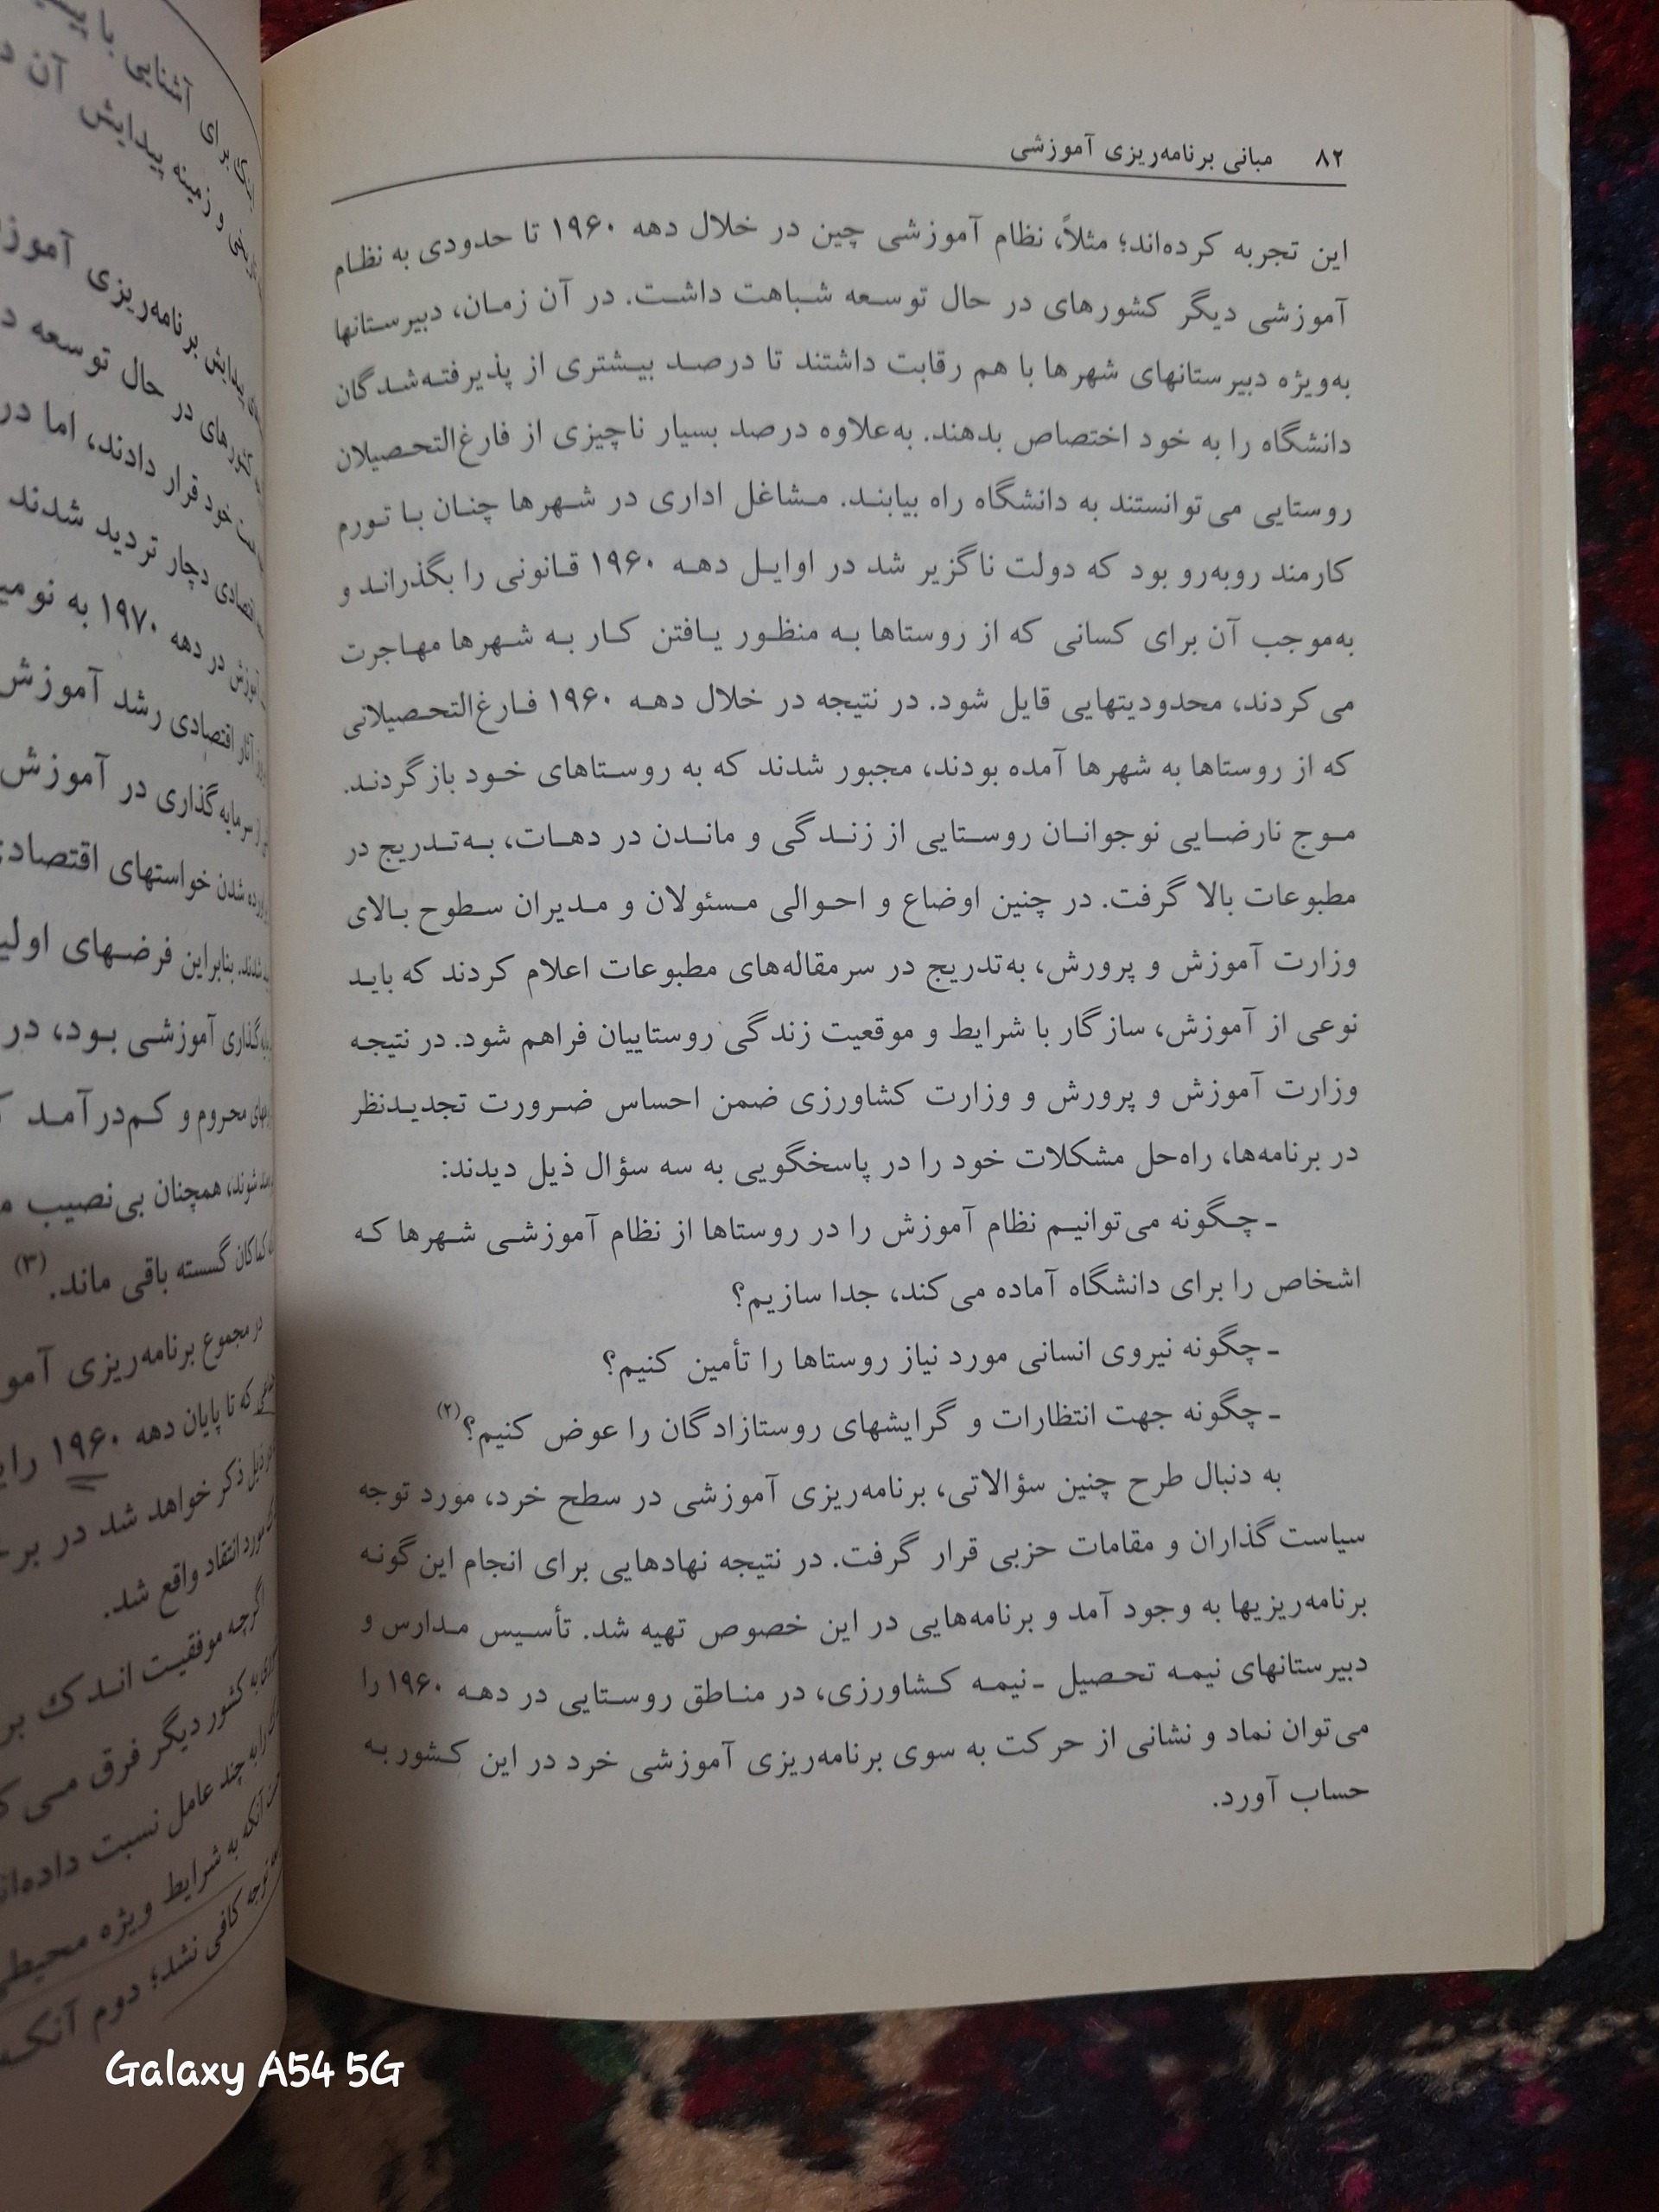 ۸۲ مبانی برنامه‌ریزی آموزشی
این تجربه کرده‌اند؛ مثلاً، نظام آموزشی چین در خلال دهه ۱۹۶۰ تا حدودی به نظام
آموزشی دیگر کشورهای در حال توسعه شباهت داشت. در آن زمان، دبیرستانها
به‌ویژه دبیرستانهای شهرها با هم رقابت داشتند تا درصد بیشتری از پذیرفته‌شدگان
دانشگاه را به خود اختصاص بدهند. به‌علاوه درصد بسیار ناچیزی از فارغ‌التحصیلان
روستایی می‌توانستند به دانشگاه راه بیابند. مشاغل اداری در شهرها چنان با تورم
کارمند روبه‌رو بود که دولت ناگزیر شد در اوایل دهه ۱۹۶۰ قانونی را بگذراند و
به‌موجب آن برای کسانی که از روستاها به منظور یافتن کار به شهرها مهاجرت
می‌کردند، محدودیتهایی قایل شود. در نتیجه در خلال دهه ۱۹۶۰ فارغ‌التحصیلانی
که از روستاها به شهرها آمده بودند، مجبور شدند که به روستاهای خود بازگردند.
موج نارضایی نوجوانان روستایی از زندگی و ماندن در دهات، به‌تدریج در
مطبوعات بالا گرفت. در چنین اوضاع و احوالی مسئولان و مدیران سطوح بالای
وزارت آموزش و پرورش، به‌تدریج در سرمقاله‌های مطبوعات اعلام کردند که باید
نوعی از آموزش، سازگار با شرایط و موقعیت زندگی روستاییان فراهم شود. در نتیجه
وزارت آموزش و پرورش و وزارت کشاورزی ضمن احساس ضرورت تجدیدنظر
در برنامه‌ها، راه‌حل مشکلات خود را در پاسخگویی به سه سؤال ذیل دیدند:
ـ چگونه می‌توانیم نظام آموزش را در روستاها از نظام آموزشی شهرها که
اشخاص را برای دانشگاه آماده می‌کند، جدا سازیم؟
ـ چگونه نیروی انسانی مورد نیاز روستاها را تأمین کنیم؟
ـ چگونه جهت انتظارات و گرایشهای روستازادگان را عوض کنیم؟(۲)
به دنبال طرح چنین سؤالاتی، برنامه‌ریزی آموزشی در سطح خرد، مورد توجه
سیاست‌گذاران و مقامات حزبی قرار گرفت. در نتیجه نهادهایی برای انجام این‌گونه
برنامه‌ریزیها به وجود آمد و برنامه‌هایی در این خصوص تهیه شد. تأسیس مدارس و
دبیرستانهای نیمه تحصیل ـ نیمه کشاورزی، در مناطق روستایی در دهه ۱۹۶۰ را
می‌توان نماد و نشانی از حرکت به سوی برنامه‌ریزی آموزشی خرد در این کشور به
حساب آورد.
برای آشنایی با
و زمینه پیدایش آن
پیدایش برنامه‌ریزی
کشورهای در حال توسعه
خود قرار دادند، اما در
دچار تردید شدند
در دهه ۱۹۷۰ به
آثار اقتصادی رشد آموزش
سرمایه‌گذاری در آموزش
شدن خواستهای
شدند. بنابراین فرضهای
آموزشی بود، در
محروم و کم‌درآمد
شوند، همچنان بی‌نصیب
گسسته باقی ماند.(۳)
در مجموع برنامه‌ریزی
که تا پایان دهه ۱۹۶۰
ذیل ذکر خواهد شد در
مورد انتقاد واقع شد.
اگرچه موفقیت اندک
کشور دیگر فرق می
را به چند عامل نسبت
آنکه به شرایط ویژه
توجه کافی نشد؛ دوم آنکه
Galaxy A54 5G